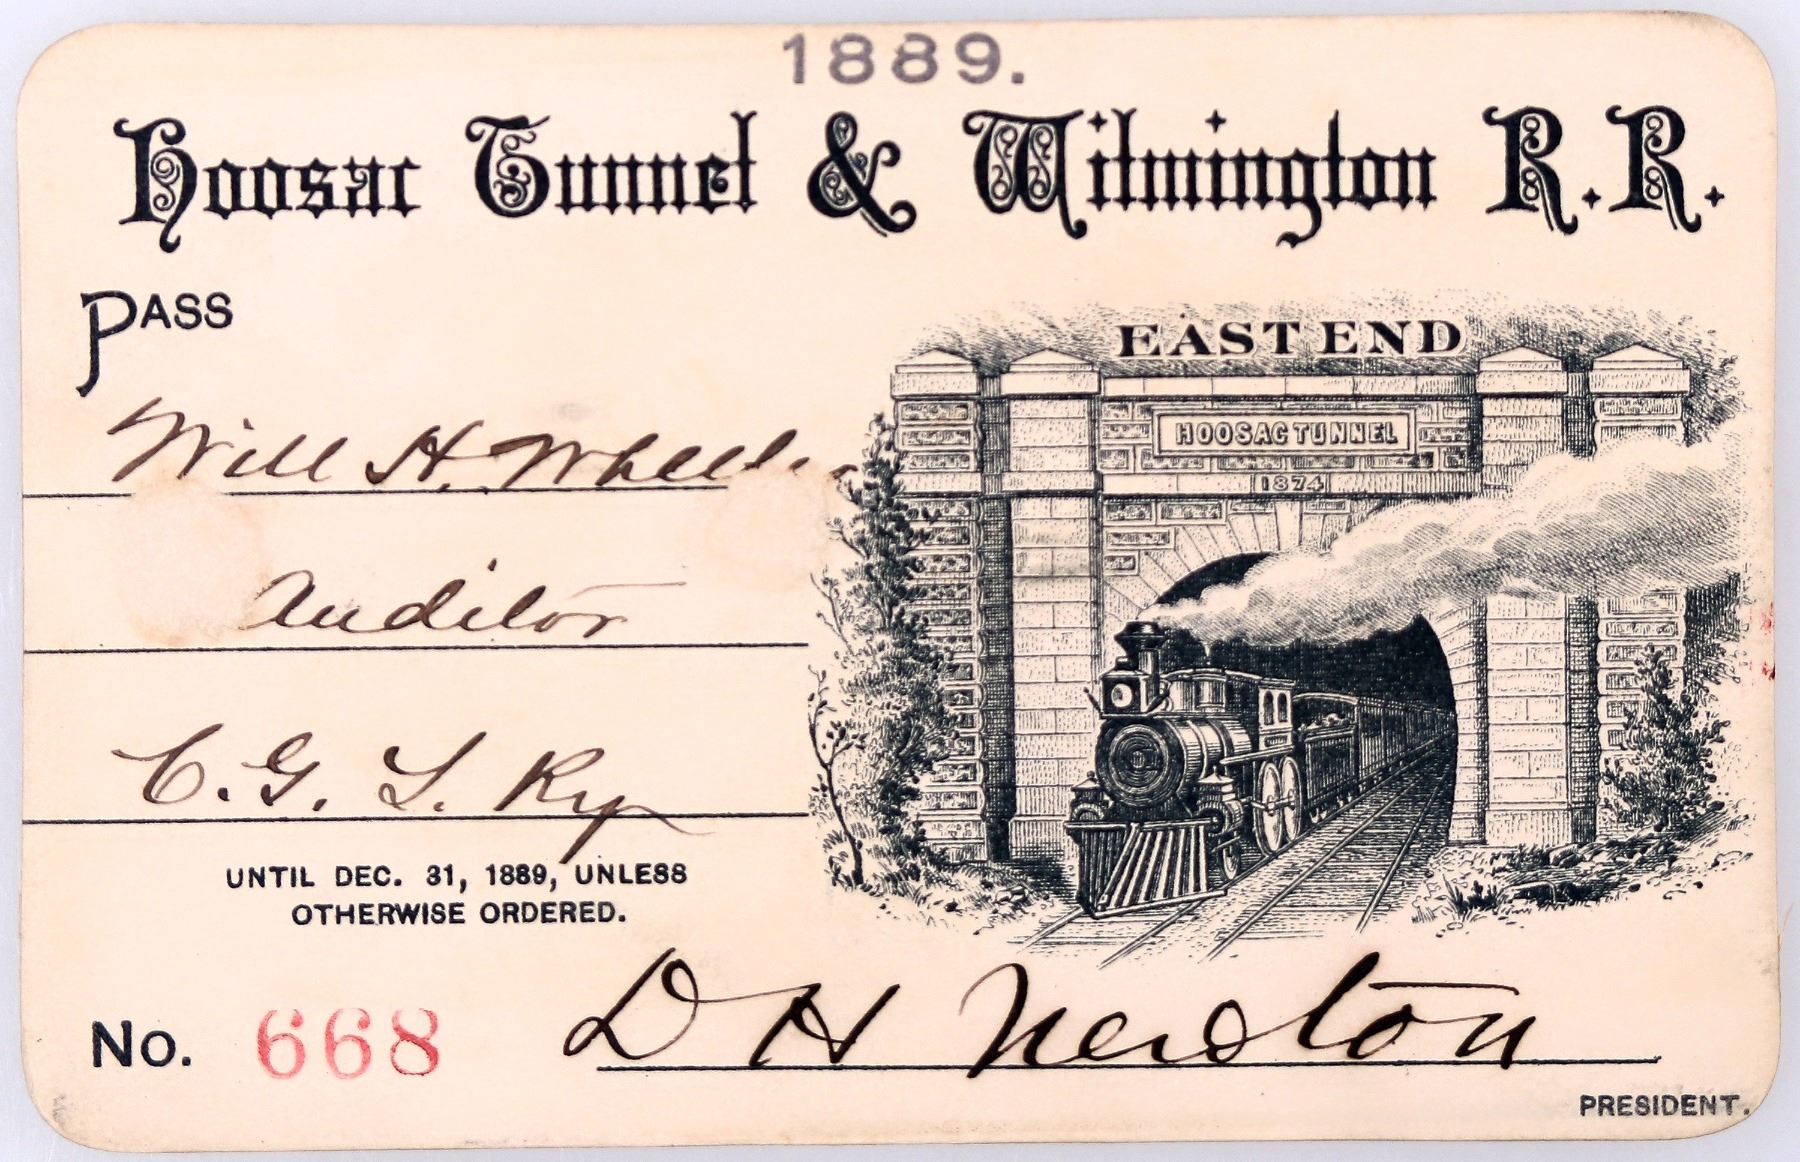 1889.
Hoosac Tunnel & Wilmington R.R.
PASS
EAST END
HOOSAC TUNNEL
1874
Will H. Wheeler
Auditor
C. G. L. Ry
UNTIL DEC. 31, 1889, UNLESS
OTHERWISE ORDERED.
No. 668
D H Newton
PRESIDENT.